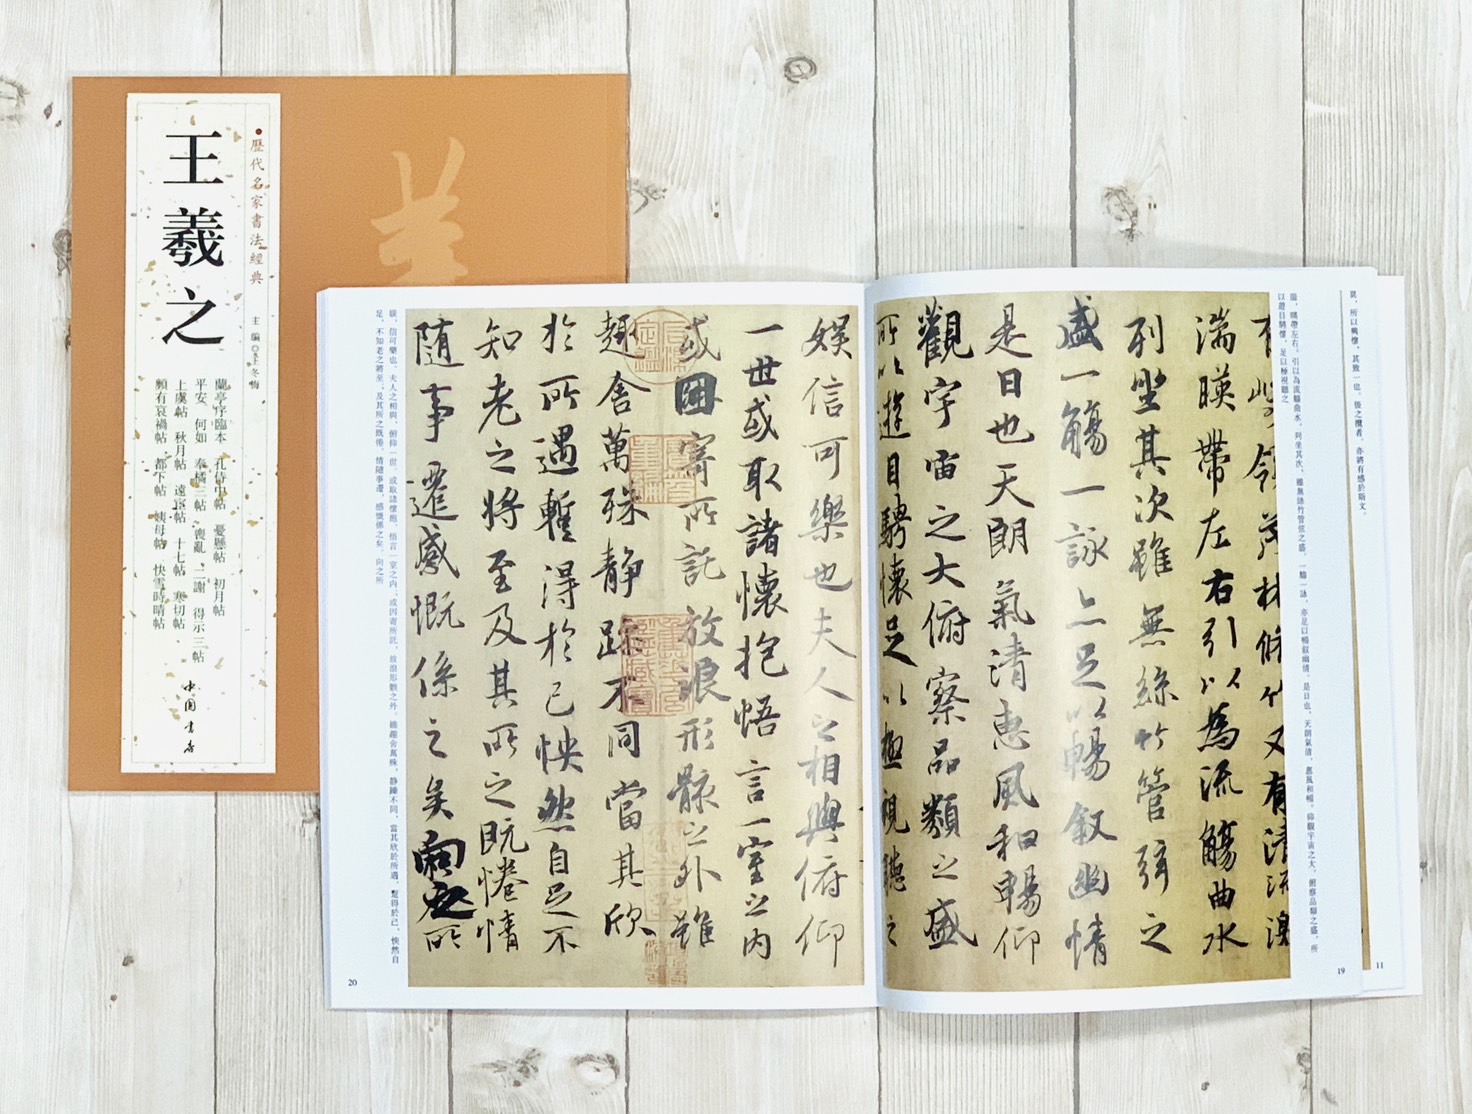 歷代名家書法經典
王羲之
主編◎王冬梅
蘭亭序臨本 孔侍中帖 憂懸帖 初月帖
平安 何如 奉橘三帖 喪亂 二謝 得示三帖
上虞帖 秋月帖 遠宦帖 十七帖 寒切帖
頻有哀禍帖 都下帖 姨母帖 快雪時晴帖
中国书店
異，所以興懷，其致一也。後之攬者，亦將有感於斯文。
11
湍，暎帶左右，引以為流觴曲水，列坐其次。雖無絲竹管弦之盛，一觴一詠，亦足以暢叙幽情。是日也，天朗氣清，惠風和暢。仰觀宇宙之大，俯察品類之盛，所
以遊目騁懷，足以極視聽之
領茂林脩竹又有清流激
湍暎帶左右引以為流觴曲水
列坐其次雖無絲竹管弦之
盛一觴一詠亦足以暢叙幽情
是日也天朗氣清惠風和暢仰
觀宇宙之大俯察品類之盛
所以遊目騁懷足以極視聽之
19
娛信可樂也夫人之相與俯仰
一世或取諸懷抱悟言一室之内
或因寄所託放浪形骸之外雖
趣舍萬殊静躁不同當其欣
於所遇暫得於己怏然自足不
知老之將至及其所之既惓情
隨事遷感慨係之矣向之所
娛，信可樂也。夫人之相與，俯仰一世，或取諸懷抱，悟言一室之内；或因寄所託，放浪形骸之外。雖趣舍萬殊，静躁不同，當其欣於所遇，暫得於己，怏然自
足，不知老之將至；及其所之既惓，情隨事遷，感慨係之矣。向之所
20